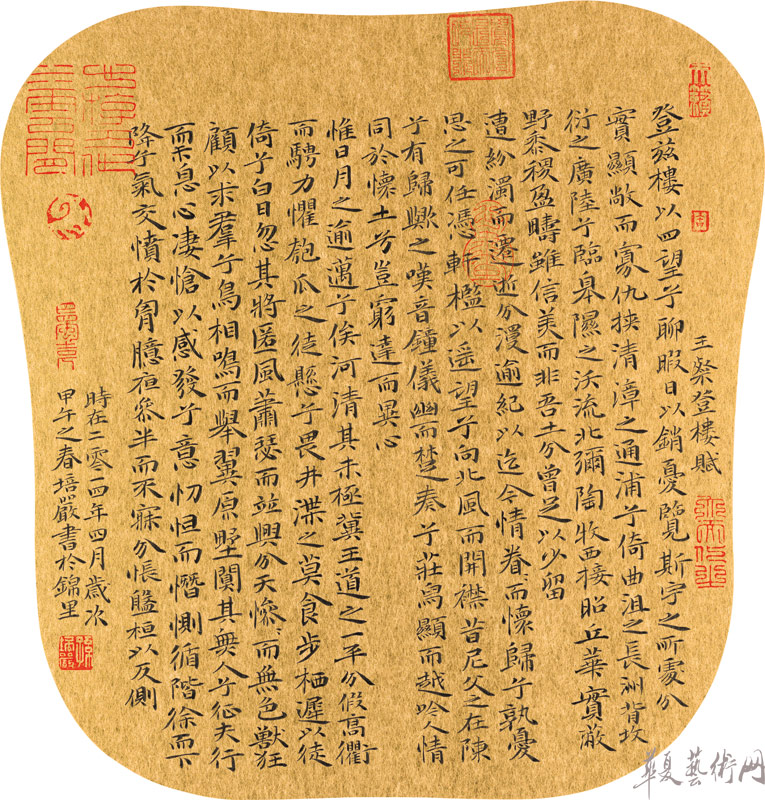 王粲登樓賦
登茲樓以四望兮聊暇日以銷憂覽斯宇之所處兮
實顯敞而寡仇挾清漳之通浦兮倚曲沮之長洲背墳
衍之廣陸兮臨皋隰之沃流北彌陶牧西接昭丘華實蔽
野黍稷盈疇雖信美而非吾土兮曾足以少留
遭紛濁而遷逝兮漫逾紀以迄今情眷〻而懷歸兮孰憂
思之可任憑軒檻以遙望兮向北風而開襟昔尼父之在陳
兮有歸歟之嘆音鐘儀幽而楚奏兮莊舄顯而越吟人情
同於懷土兮豈窮達而異心
惟日月之逾邁兮俟河清其未極冀王道之一平兮假高衢
而騁力懼匏瓜之徒懸兮畏井渫之莫食步栖遲以徙
倚兮白日忽其將匿風蕭瑟而並興兮天慘〻而無色獸狂
顧以求羣兮鳥相鳴而舉翼原野闃其無人兮征夫行
而未息心悽愴以感發兮意忉怛而憯惻循階除而下
降兮氣交憤於胷臆夜參半而不寐兮悵盤桓以反側
時在二零一四年四月歲次
甲午之春培嚴書於錦里
華夏藝術网